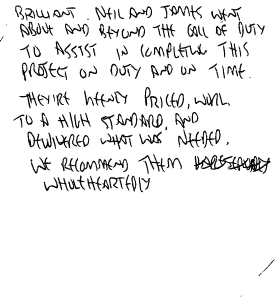 BRILLIANT. NEIL AND JAMES WENT
ABOVE AND BEYOND THE CALL OF DUTY
TO ASSIST IN COMPLETING THIS
PROJECT ON DUTY AND ON TIME.
THEY'RE KEENLY PRICED, WORK
TO A HIGH STANDARD, AND
DELIVERED WHAT WAS NEEDED.
WE RECOMMEND THEM
WHOLEHEARTEDLY